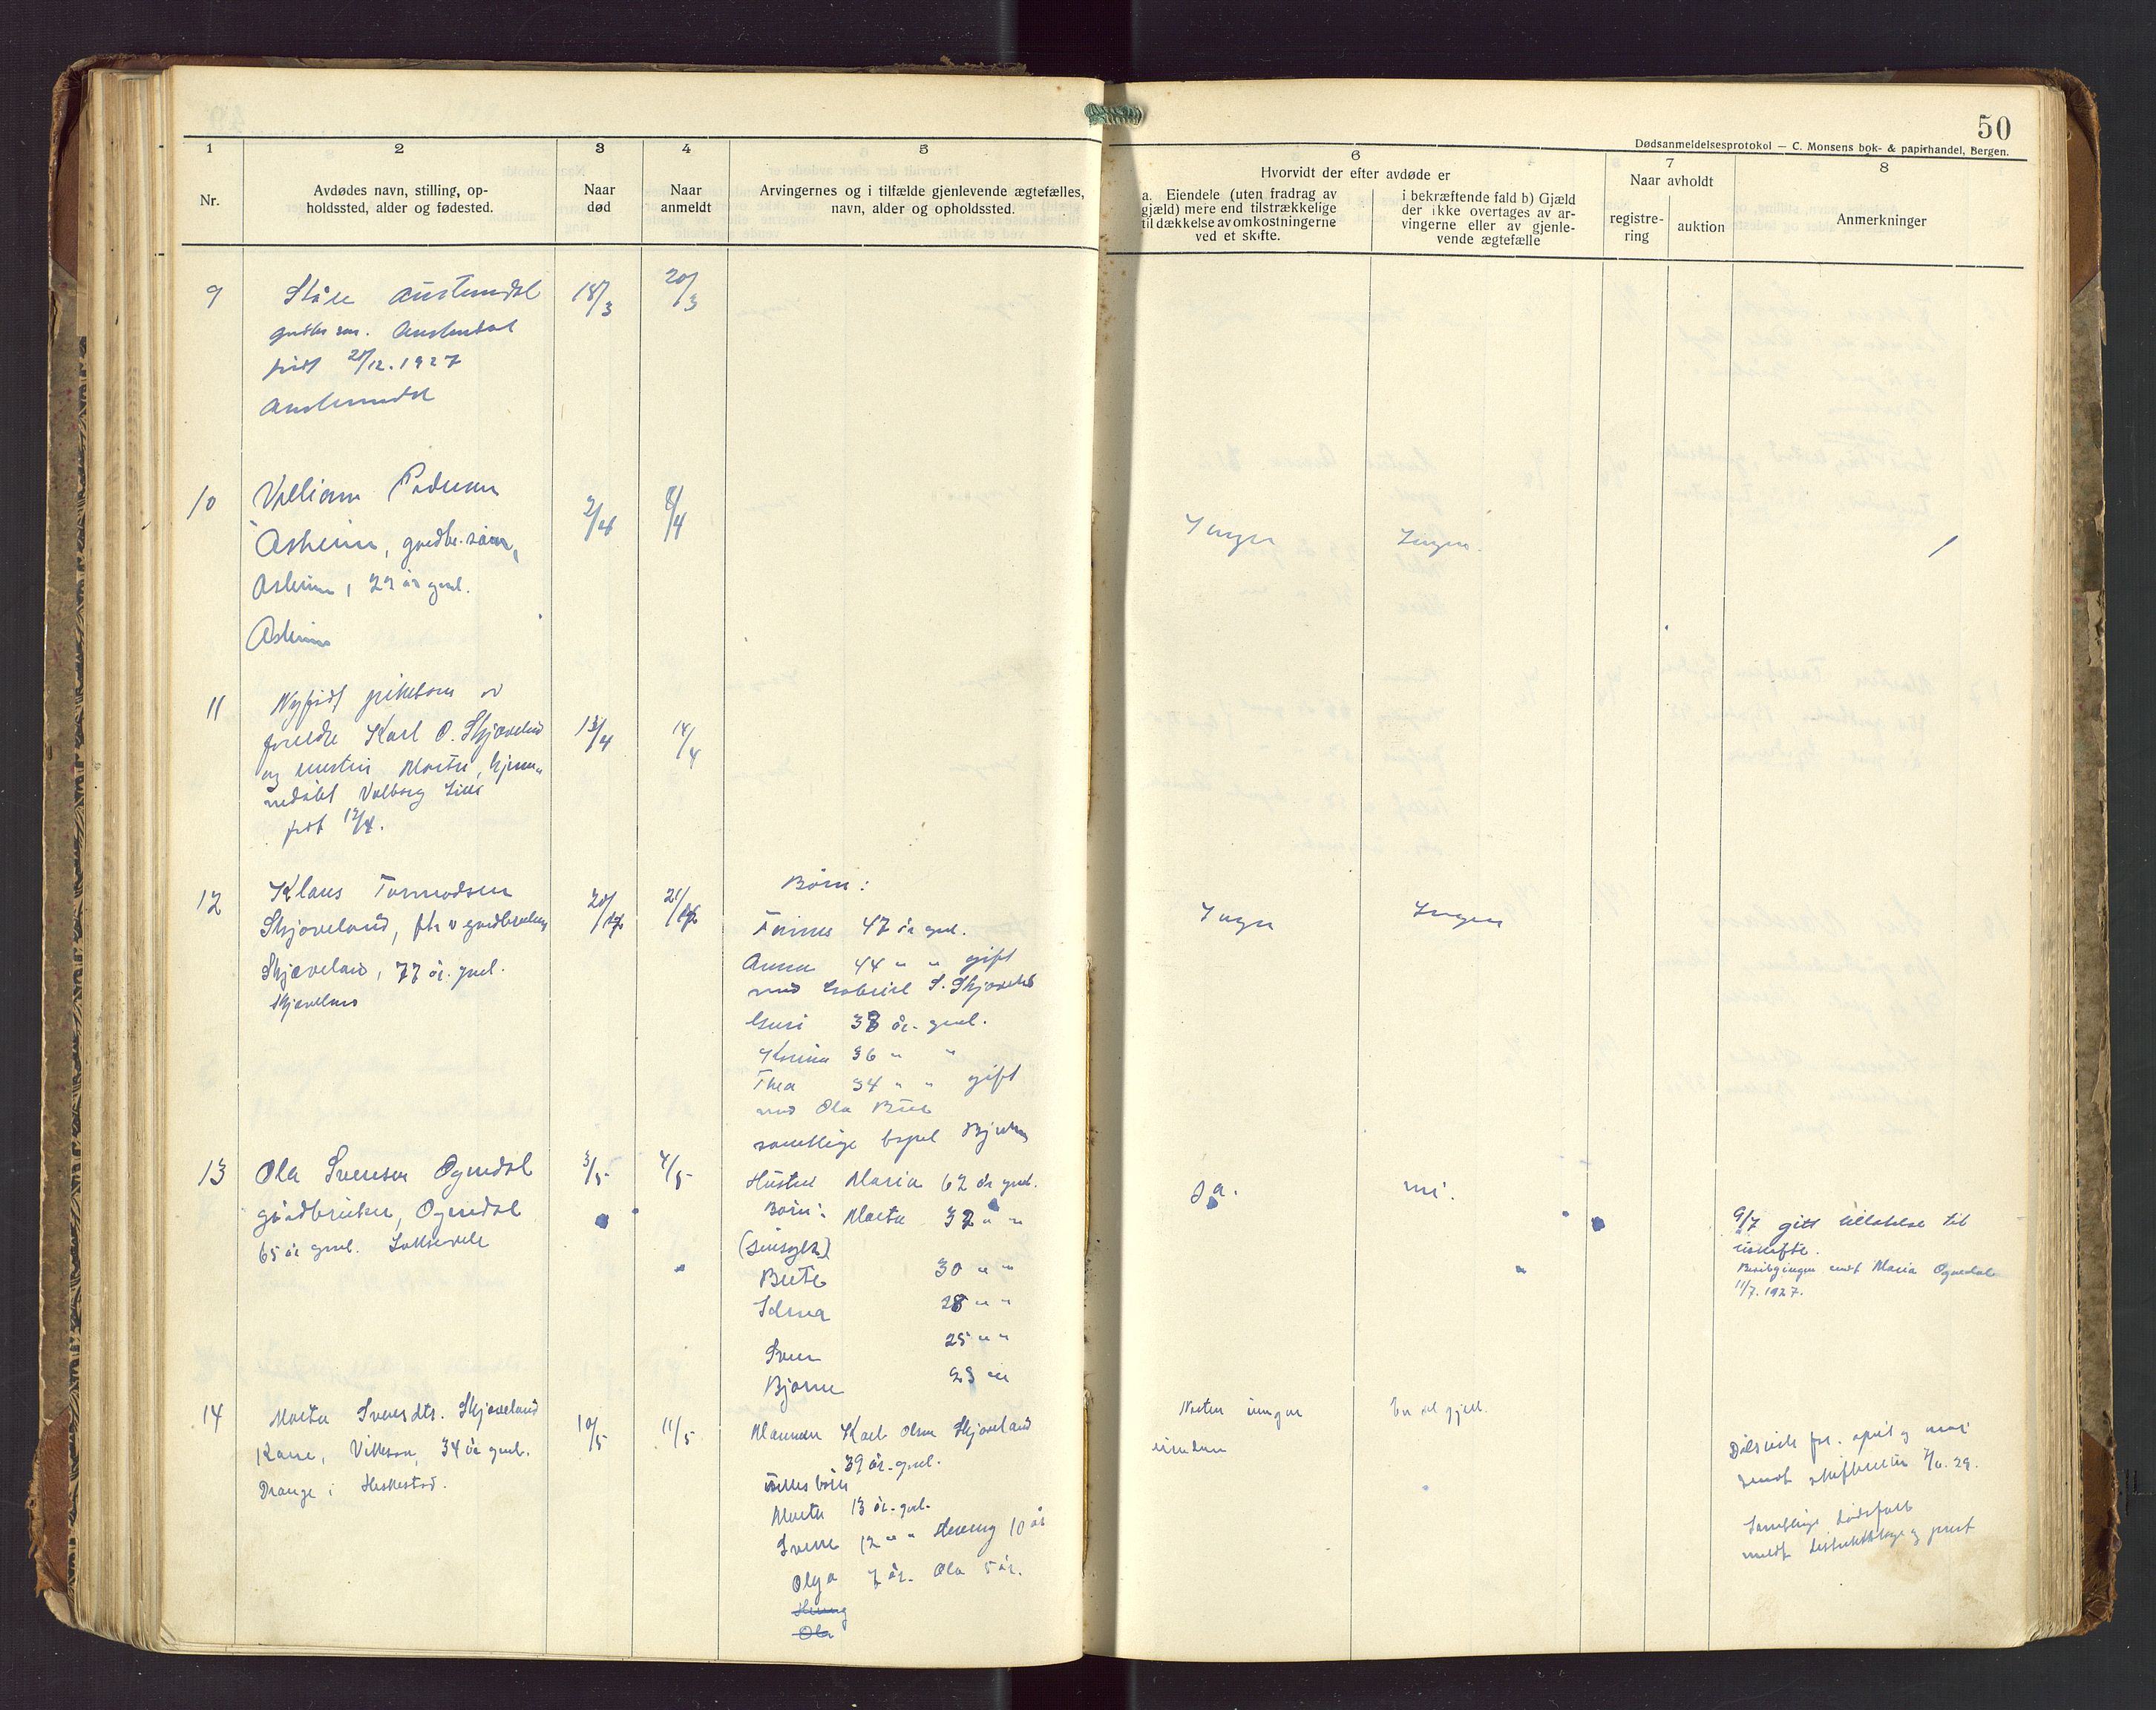 50
Dødsanmeldelsesprotokol — C. Monsens bok- & papirhandel, Bergen.
1 2 3 4 5 6 7 8
Nr.
Avdødes navn, stilling, op-
holdssted, alder og fødested.
Naar
død
Naar
anmeldt
Arvingernes og i tilfælde gjenlevende ægtefælles,
navn, alder og opholdssted.
Hvorvidt der efter avdøde er
a. Eiendele (uten fradrag av
gjæld) mere end tilstrækkelige
til dækkelse av omkostningerne
ved et skifte.
i bekræftende fald b) Gjæld
der ikke overtages av ar-
vingerne eller av gjenle-
vende ægtefælle
Naar avholdt
registre-
ring
auktion
Anmerkninger
9 Ståle Austumdal 18/3 20/3
født 28/12. 1927
10 Villiam Pedersen 2/4 8/4
Asheim, gardbr. søn,
Asheim, 29 år gml.
Asheim
Ingen Ingen
11 Nyfødt pikebarn av
foreldre Karl O. Skjæveland 13/4 14/4
og hustru Marta, hjemme-
nedøbt Valborg
født 12/4.
12 Klaus Tormodsen 20/4 21/4
Skjæveland, fhv gardbruker
Skjæveland, 77 år. gml.
Skjæveland
Børn:
Tønnes 47 år gml.
Anna 44 " " gift
med Gabriel S. Skjæveland
Guri 38 år. gml.
Karina 36 " "
Thea 34 " " gift
med Ola Bue
samtlige bopel Bjerkreim
Ingen Ingen
13 Ola Svensen Ognedal 3/5 4/5
gårdbruker, Ognedal
65 år gml.
Hustru Maria 62 år gml.
Børn: Marta 32 " "
(sinsyk)
Berta 30 " "
Selma 28 " "
Sven 25 " "
Bjarne 23 " "
Ja. nei.
9/7 gitt tillatelse til
uskifte.
Bevilgningen sendt Maria Ognedal
11/7. 1927.
14 Marta Svensdtr. Skjæveland 10/5 11/5
Kone, Vikeson, 34 år gml.
Drange i Heskestad.
Mannen Karl Olsen Skjæveland
39 år. gml.
Felles børn
Marta 13 år. gml.
Sven 12 " " Henny 10 år
Olga 7 år. Ola 5 år.
Henny
Ola
Noen
eiendom
april og mai
sendt skifteretten
Samtlige dødsfall
meldt distriktslege og prest